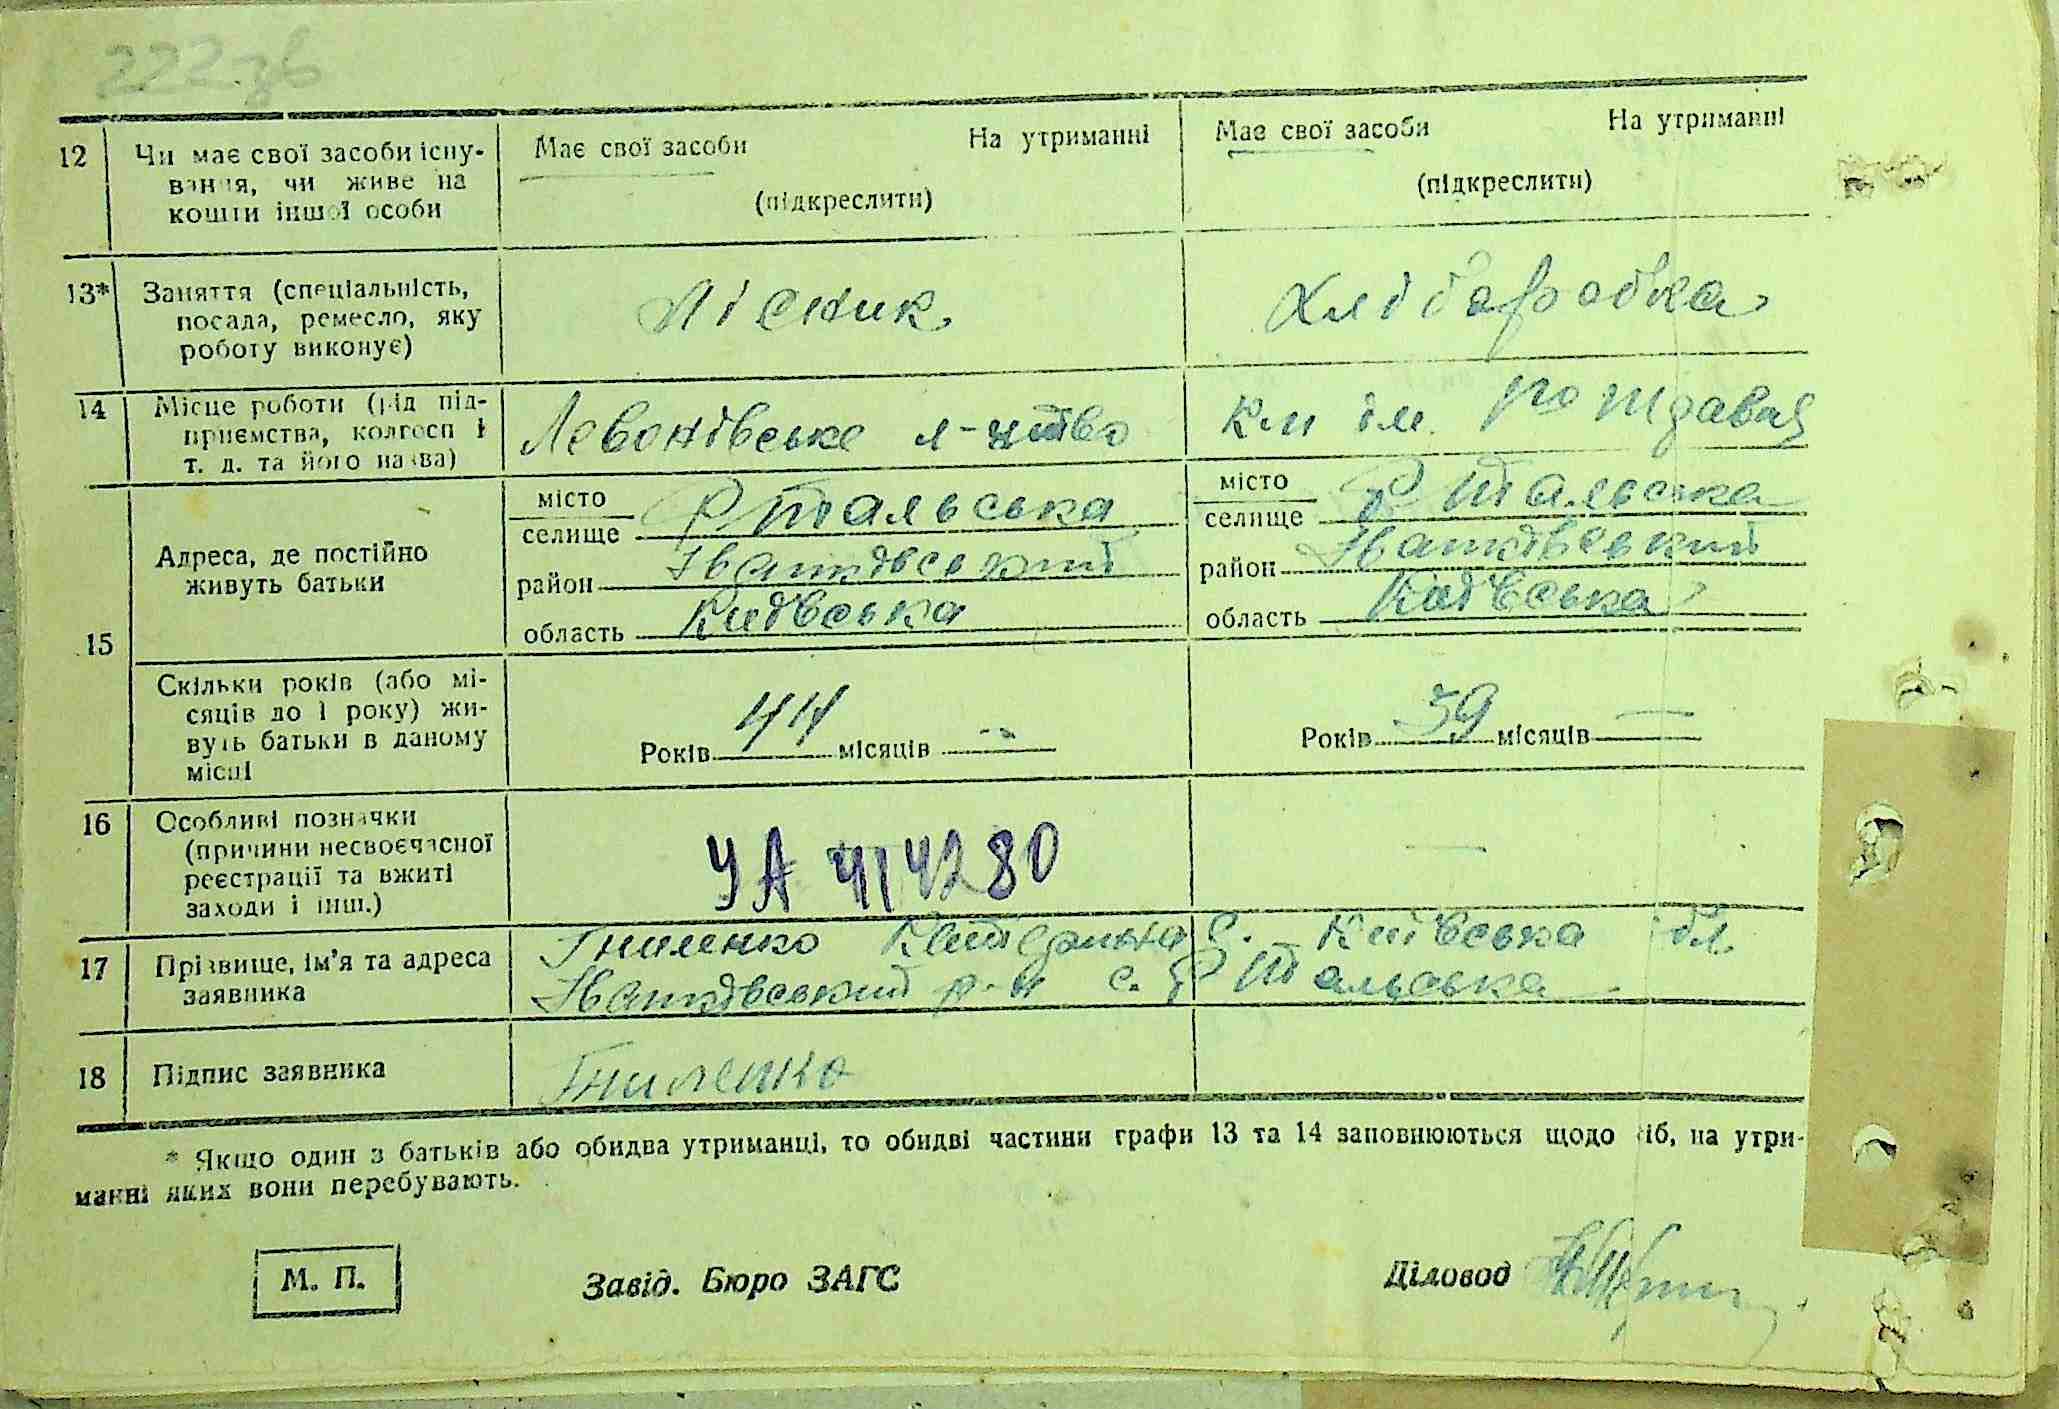 222 зв
12 Чи має свої засоби існу- Має свої засоби На утриманні Має свої засоби На утриманні
вання, чи живе на
кошти іншої особи (підкреслити) (підкреслити)
13* Заняття (спеціальність, Лісник Хліборобка
посада, ремесло, яку
роботу виконує)
14 Місце роботи (рід під- Левонівське л-цтво Кл ім.
приємства, колгосп і
т. д. та його назва)
місто місто
селище Р Тальська селище Р Тальська
Адреса, де постійно район Іванківський район Іванківський
живуть батьки область Київська область Київська
15
Скільки років (або мі-
сяців до 1 року) жи-
вуть батьки в даному Років 44 місяців — Років 39 місяців —
місці
16 Особливі позначки
(причини несвоєчасної УА 414280 —
реєстрації та вжиті
заходи і інш.)
17 Прізвище, ім'я та адреса Гниленко Катерина с. Київська обл.
заявника Іванківський р-н с. Р Тальська
18 Підпис заявника Гниленко
* Якщо один з батьків або обидва утриманці, то обидві частини графи 13 та 14 заповнюються щодо осіб, на утри-
манні яких вони перебувають.
М. П. Завід. Бюро ЗАГС Діловод